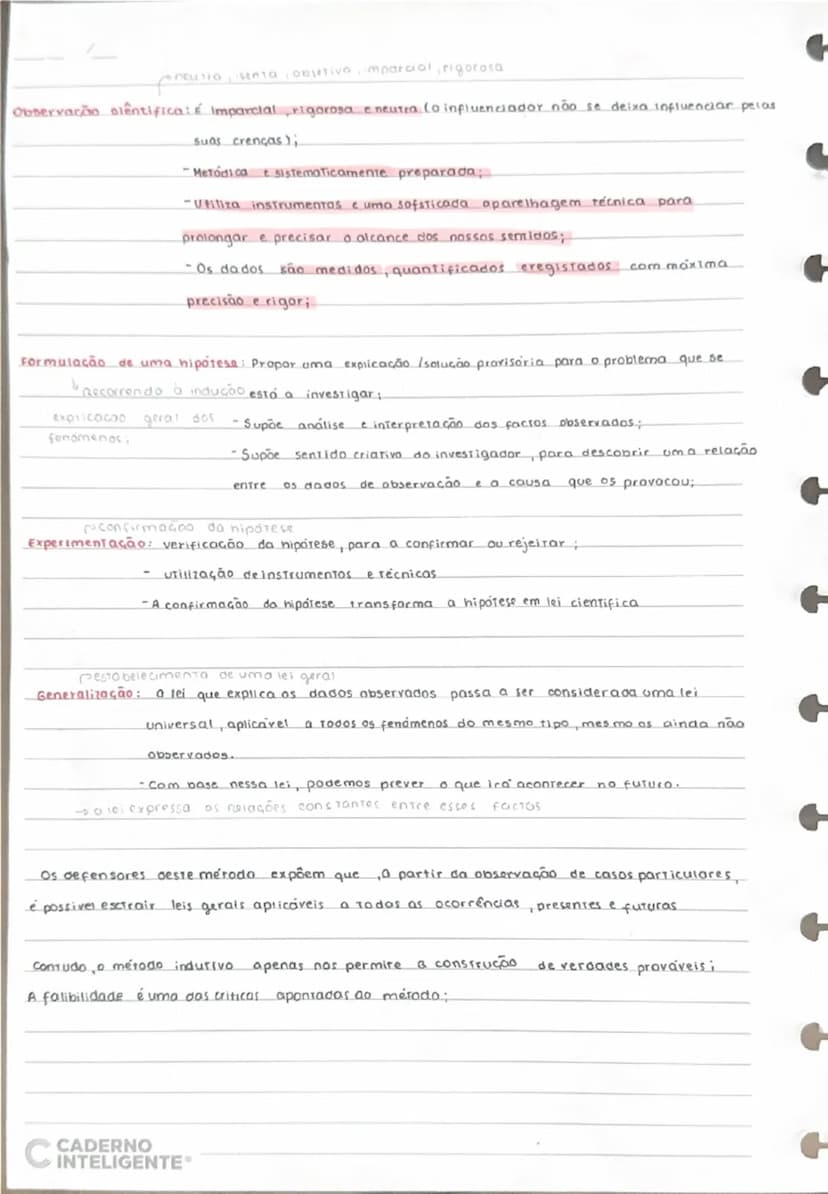 neutra, isenta, objetiva, imparcial, rigorosa
Observação ciêntifica: É imparcial, rigorosa e neutra (o influenciador não se deixa influenciar pelas
suas crenças);
- Metódica e sistematicamente preparada;
- Utiliza instrumentos e uma sofsticada aparelhagem técnica para
prolongar e precisar o alcance dos nossos sentidos;
- Os dados são medidos, quantificados e registados com máxima
precisão e rigor;
Formulação de uma hipótese: Propor uma explicação / solução provisória para o problema que se
↳ Recorrendo à indução está a investigar;
explicação geral dos - Supõe análise e interpretação dos factos observados;
fenómenos;
- Supõe sentido criativo do investigador, para descobrir uma relação
entre os dados de observação e a causa que os provocou;
confirmação da hipótese
Experimentação: verificação da hipótese, para a confirmar ou rejeitar;
- utilização de instrumentos e técnicas
- A confirmação da hipótese transforma a hipótese em lei cientifica
estabelecimento de uma lei geral
Generalização: a lei que explica os dados observados passa a ser considerada uma lei
universal, aplicável a todos os fenómenos do mesmo tipo, mesmo os ainda não
observados.
- Com base nessa lei, podemos prever o que irá acontecer no futuro.
→ a lei expressa as relações constantes entre esses factos
Os defensores deste método expõem que, a partir da observação de casos particulares,
é possivel esctrair leis gerais aplicáveis a todas as ocorrências, presentes e futuras
Contudo, o método indutivo apenas nos permite a construção de verdades prováveis;
A falibilidade é uma das criticas apontadas ao método;
CADERNO
INTELIGENTE®